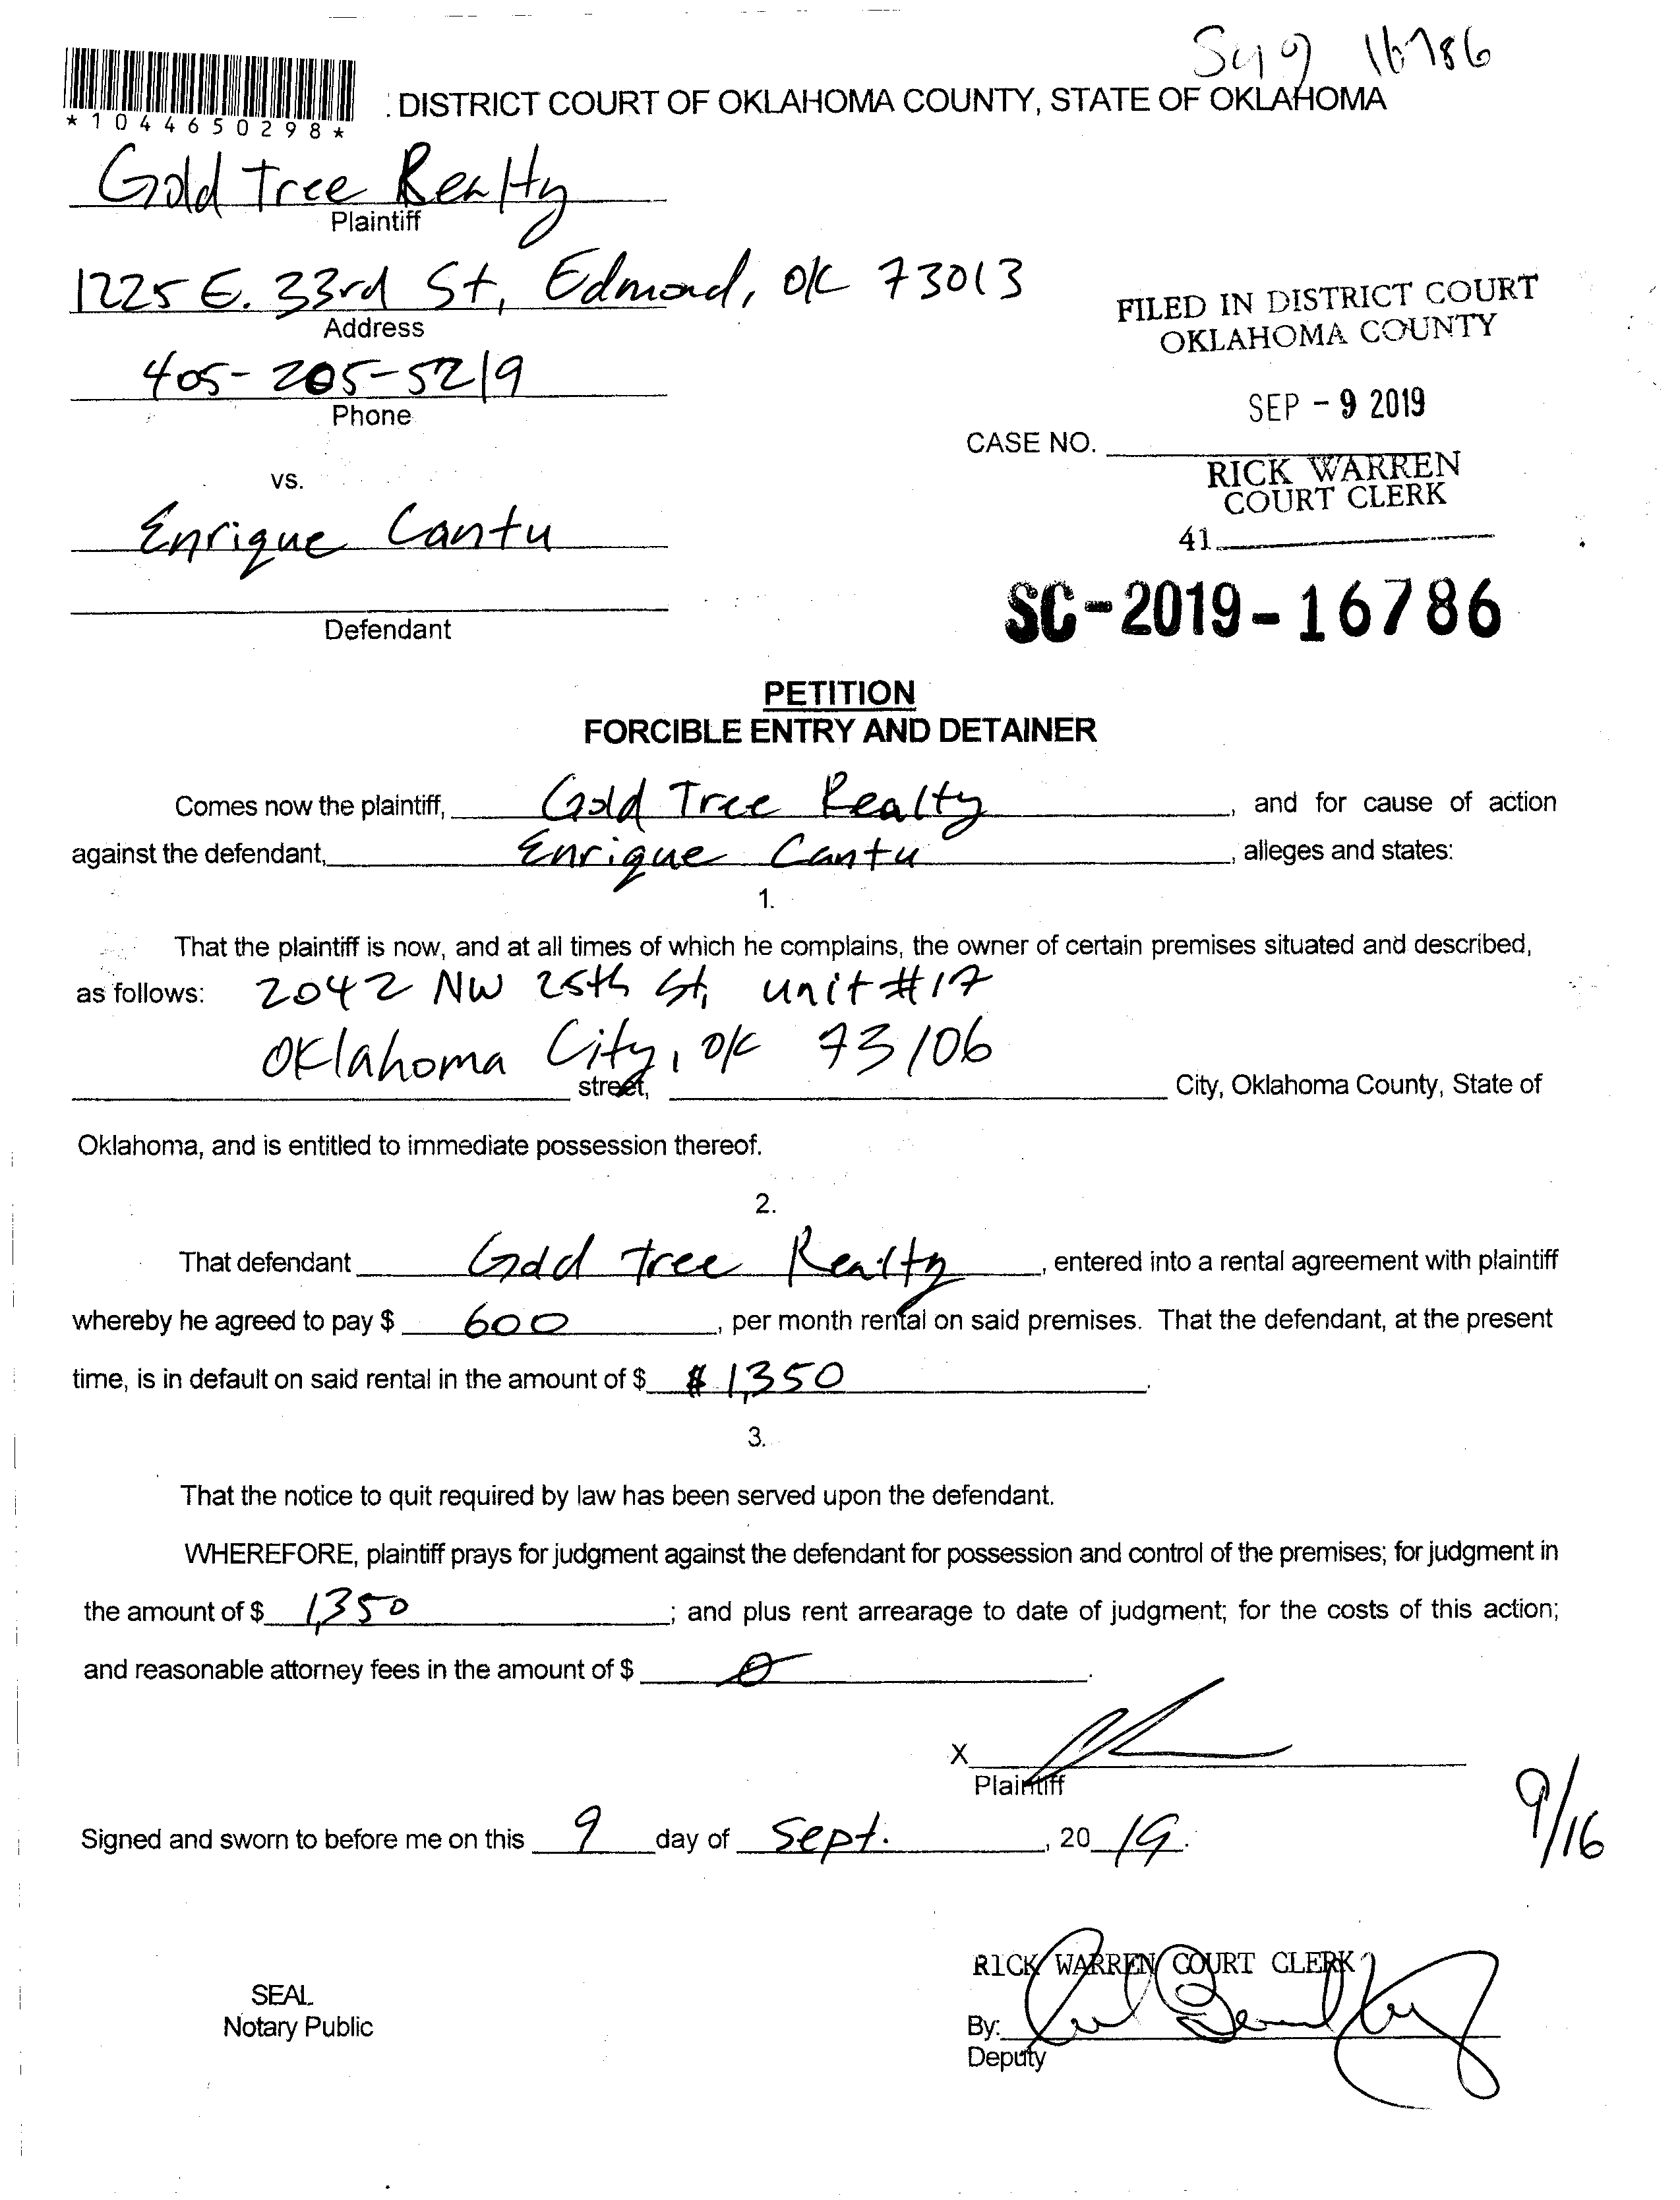 Sc19 16786
*1044650298*
: DISTRICT COURT OF OKLAHOMA COUNTY, STATE OF OKLAHOMA
Gold Tree Realty
Plaintiff
1225 E. 33rd St, Edmond, OK 73013
Address
FILED IN DISTRICT COURT
OKLAHOMA COUNTY
405-205-5219
Phone
SEP - 9 2019
CASE NO.
vs.
RICK WARREN
COURT CLERK
Enrique Cantu
41
SC-2019-16786
Defendant
PETITION
FORCIBLE ENTRY AND DETAINER
Comes now the plaintiff, Gold Tree Realty, and for cause of action
against the defendant, Enrique Cantu, alleges and states:
1.
That the plaintiff is now, and at all times of which he complains, the owner of certain premises situated and described,
as follows: 2042 NW 25th St, unit #17
Oklahoma City, OK 73106
street, City, Oklahoma County, State of
Oklahoma, and is entitled to immediate possession thereof.
2.
That defendant Gold Tree Realty, entered into a rental agreement with plaintiff
whereby he agreed to pay $ 600, per month rental on said premises. That the defendant, at the present
time, is in default on said rental in the amount of $ $1,350.
3.
That the notice to quit required by law has been served upon the defendant.
WHEREFORE, plaintiff prays for judgment against the defendant for possession and control of the premises; for judgment in
the amount of $ 1,350; and plus rent arrearage to date of judgment; for the costs of this action;
and reasonable attorney fees in the amount of $ 0.
X
Plaintiff
Signed and sworn to before me on this 9 day of Sept., 2019.
9/16
RICK WARREN COURT CLERK
SEAL
Notary Public
By:
Deputy